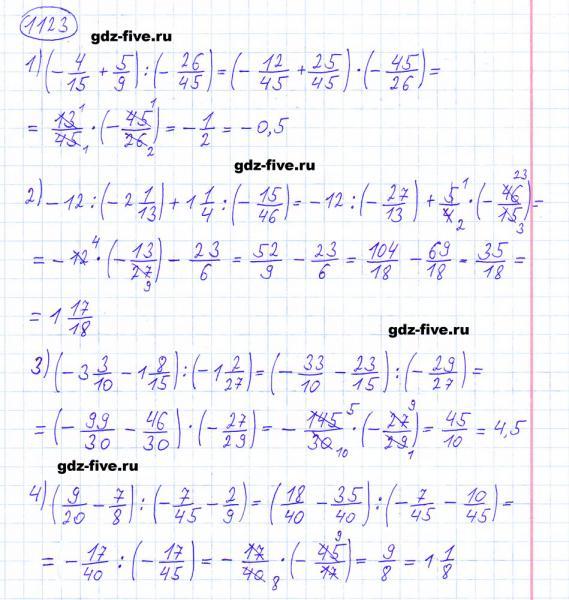 1123
gdz-five.ru
1) (-4/15 + 5/9) : (-26/45) = (-12/45 + 25/45) · (-45/26) =
= 13/45 · (-45/26) = -1/2 = -0,5
gdz-five.ru
2) -12 : (-2 1/13) + 1 1/4 : (-15/46) = -12 : (-27/13) + 5/4 · (-46/15) =
= -12 · (-13/27) - 23/6 = 52/9 - 23/6 = 104/18 - 69/18 = 35/18 =
= 1 17/18
gdz-five.ru
3) (-3 3/10 - 1 8/15) : (-1 2/27) = (-33/10 - 23/15) : (-29/27) =
= (-99/30 - 46/30) · (-27/29) = -145/30 · (-27/29) = 45/10 = 4,5
gdz-five.ru
4) (9/20 - 7/8) : (-7/45 - 2/9) = (18/40 - 35/40) : (-7/45 - 10/45) =
= -17/40 : (-17/45) = -17/40 · (-45/17) = 9/8 = 1 1/8